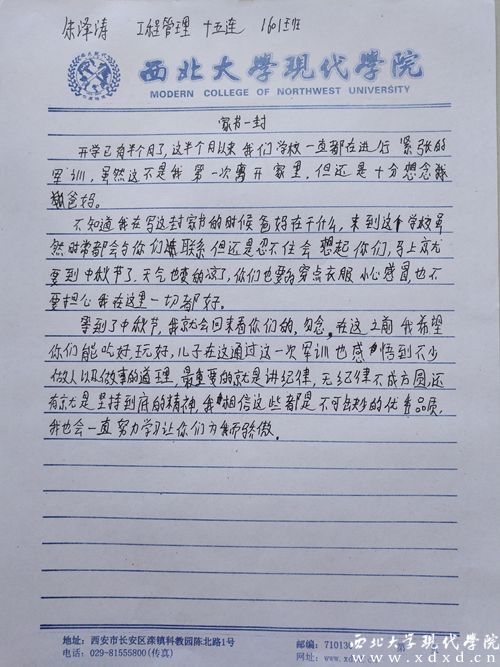 朱泽涛 工程管理 十五连 1601班
西北大学现代学院
MODERN COLLEGE OF NORTHWEST UNIVERSITY
家书一封
开学已有半个月了,这半个月以来我们学校一直都在进行紧张的
军训,虽然这不是我第一次离开家里,但还是十分想念我
爸妈。
不知道我在写这封家书的时候爸妈在干什么,来到这个学校虽
然时常都会与你们联系但还是忍不住会想起你们,马上就
要到中秋节了,天气也变的凉了,你们也要多穿点衣服小心感冒,也不
要担心我在这里一切都好。
等到了中秋节,我就会回来看你们的,勿念。在这之前我希望
你们能吃好,玩好,儿子在这通过这一次军训也感悟到不少
做人以及做事的道理,最重要的就是讲纪律,无纪律不成方圆还
有就是坚持到底的精神,我相信这些都是不可缺少的优秀品质,
我也会一直努力学习让你们为我而骄傲。
地址:西安市长安区滦镇科教园陈北路1号
电话:029-81555800(传真)
邮编:71013
网址:www.
西北大学现代学院
www.xdxd.cn